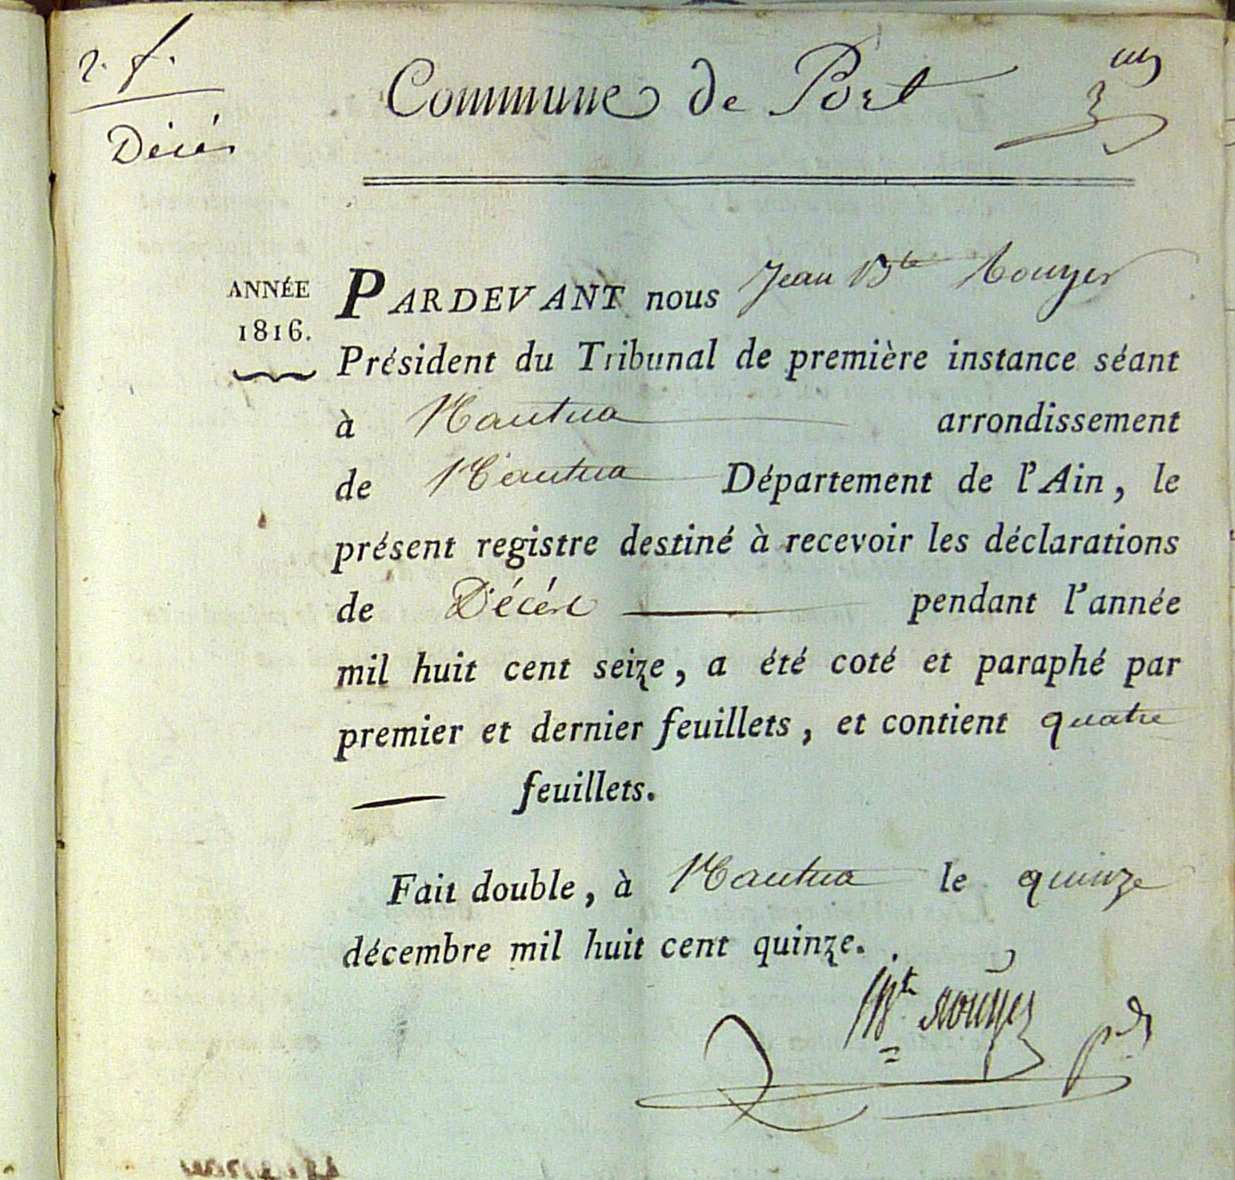 2. f.
Décés
Commune de Port
ANNÉE
1816.
PARDEVANT nous Jean Bte Rouyer
Président du Tribunal de première instance séant
à Nantua arrondissement
de Nantua Département de l'Ain, le
présent registre destiné à recevoir les déclarations
de Décés pendant l'année
mil huit cent seize, a été coté et paraphé par
premier et dernier feuillets, et contient quatre
feuillets.
Fait double, à Nantua le quinze
décembre mil huit cent quinze.
Bte Rouyer pdt